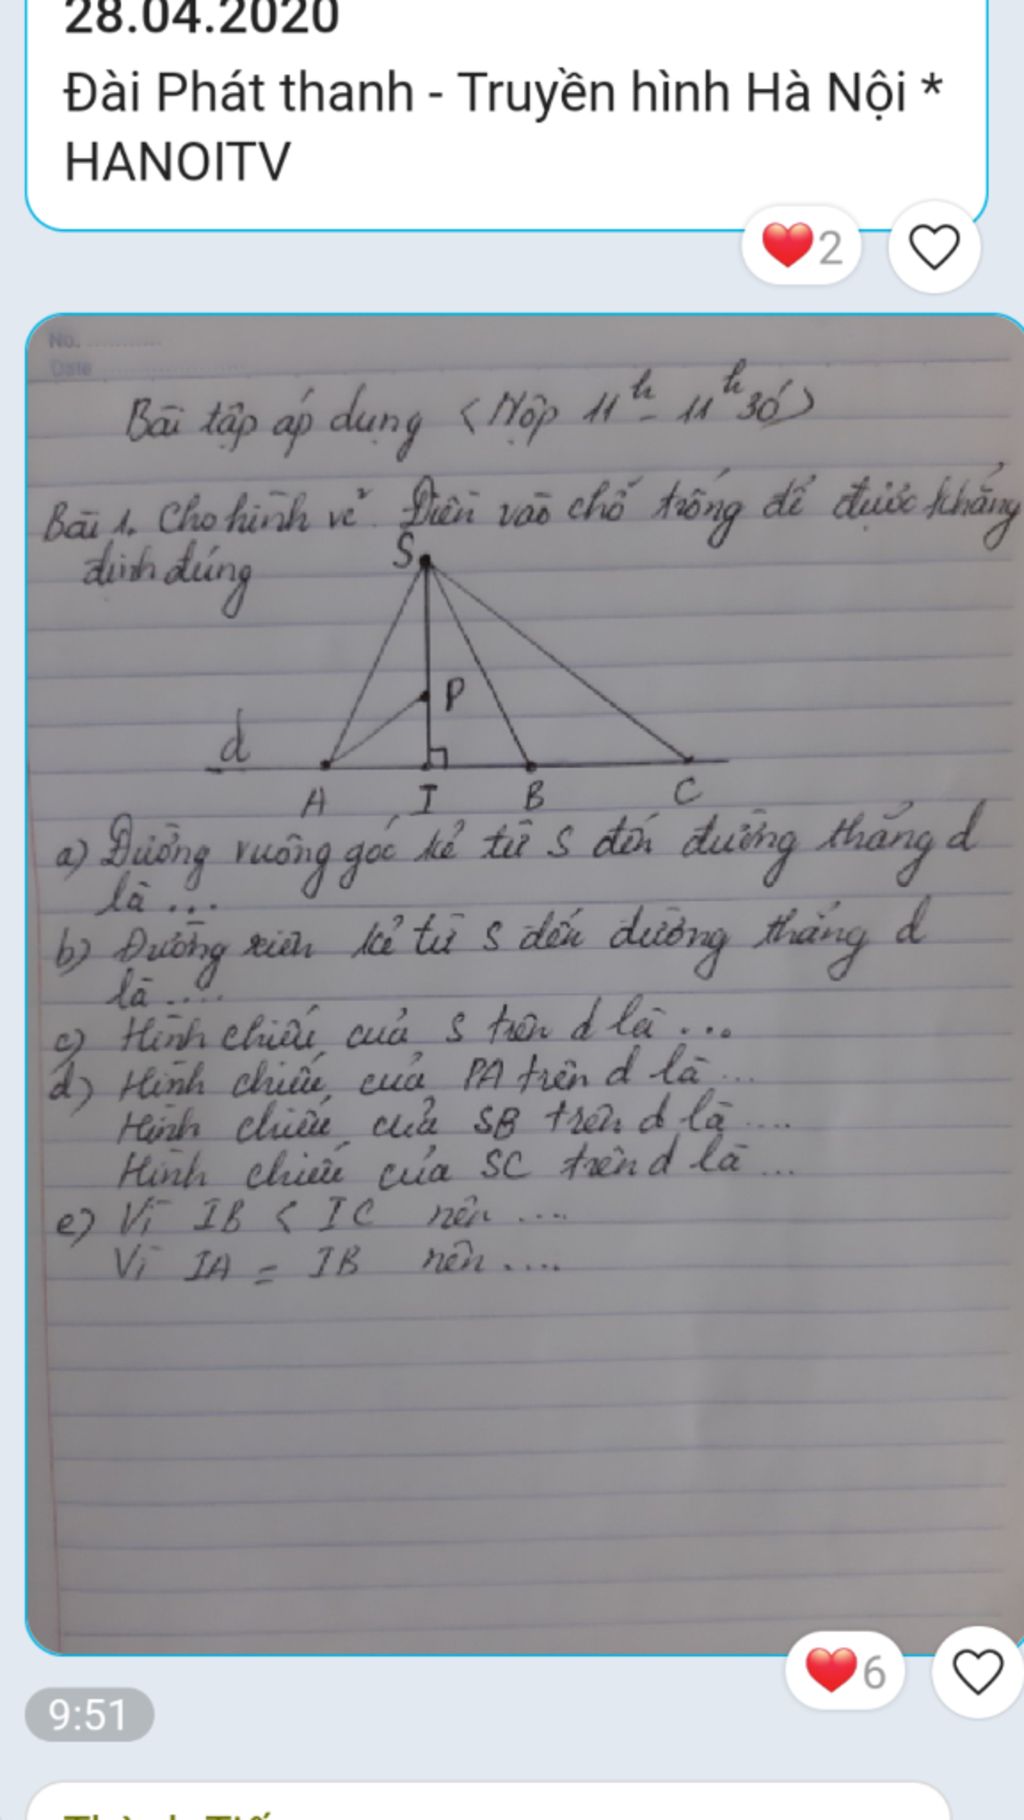 28.04.2020
Đài Phát thanh - Truyền hình Hà Nội *
HANOITV
2
No. ............
Date ............
Bài tập áp dụng < Nộp 11h - 11h30' >
Bài 1. Cho hình vẽ. Điền vào chỗ trống để được khẳng
định đúng
S
P
d
A I B C
a) Đường vuông góc kẻ từ S đến đường thẳng d
là ...
b) Đường xiên kẻ từ S đến đường thẳng d
là ....
c) Hình chiếu của S trên d là ...
d) Hình chiếu của PA trên d là ...
Hình chiếu của SB trên d là ....
Hình chiếu của SC trên d là ...
e) Vì IB < IC nên ....
Vì IA = IB nên ....
6
9:51